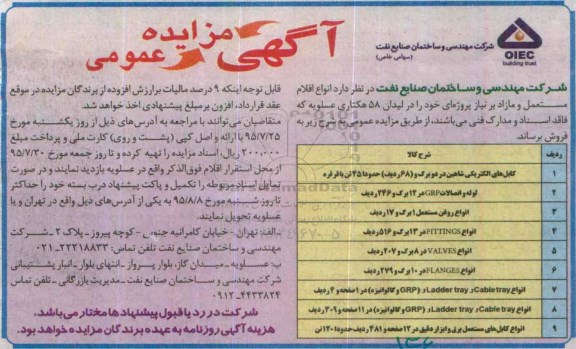 آگهی مزایده
عمومی
OIEC
building trust
شرکت مهندسی و ساختمان صنایع نفت
(سهامی خاص)
شرکت مهندسی و ساختمان صنایع نفت در نظر دارد انواع اقلام
مستعمل و مازاد بر نیاز پروژه‌ای خود را در لیدان ۵۸ هکتاری عسلویه که
فاقد اسناد و مدارک فنی می‌باشند، از طریق مزایده عمومی به شرح زیر به
فروش برساند.
ردیف شرح کالا
۱ کابل‌های الکتریکی شاهین در دو برگ و (۶۸ ردیف) حدودا ۲۵ تن با قرقره
۲ لوله و اتصالات GRP در ۱۲ برگ و ۲۴۶ ردیف
۳ انواع روغن مستعمل ۱ برگ و ۱۷ ردیف
۴ انواع FITTINGS در ۱۳ برگ و ۵۱۶ ردیف
۵ انواع VALVES در ۸ برگ و ۲۰۷ ردیف
۶ انواع FLANGES در ۱۰ برگ و ۲۷۹ ردیف
۷ انواع Cable tray و Ladder tray (GRP و گالوانیزه) در ۱ صفحه و ۴ ردیف
۸ انواع Cable tray و Ladder tray (GRP و گالوانیزه) در ۱۱ صفحه و ۳۰۹ ردیف
۹ انواع کابل‌های مستعمل برق و ابزار دقیق در ۱۲ صفحه و ۴۸۱ ردیف حدودا ۱۲۰ تن
قابل توجه اینکه ۹ درصد مالیات بر ارزش افزوده از برندگان مزایده در موقع
عقد قرارداد، افزون بر مبلغ پیشنهادی اخذ خواهد شد.
متقاضیان می‌توانند با مراجعه به آدرس‌های ذیل از روز یکشنبه مورخ
۹۵/۷/۲۵ با ارائه و اصل کپی (پشت و روی) کارت ملی و پرداخت مبلغ
۲۰۰۰،۰۰۰ ریال، اسناد مزایده را تهیه کرده و تا روز جمعه مورخ ۹۵/۷/۳۰
از محل استقرار اقلام فوق‌الذکر واقع در عسلویه بازدید نمایند و در صورت
تمایل اسناد مربوطه را تکمیل و پاکت پیشنهاد درب بسته خود را حداکثر
تا روز شنبه مورخ ۹۵/۸/۸ به یکی از آدرس‌های ذیل واقع در تهران و یا
عسلویه تحویل نمایند.
الف: تهران - خیابان کامرانیه جنوبی - کوچه پیروز - پلاک ۲ - شرکت
مهندسی و ساختمان صنایع نفت تلفن تماس: ۲۲۲۱۸۸۳۳-۰۲۱
ب: عسلویه - میدان گاز، بلوار پرواز - انتهای بلوار - انبار پشتیبانی
شرکت مهندسی و ساختمان صنایع نفت - مدیریت بازرگانی - تلفن تماس
۰۹۱۲-۴۴۳۳۸۲۴
شرکت در رد یا قبول پیشنهادها مختار می‌باشد.
هزینه آگهی روزنامه به عهده برندگان مزایده خواهد بود.